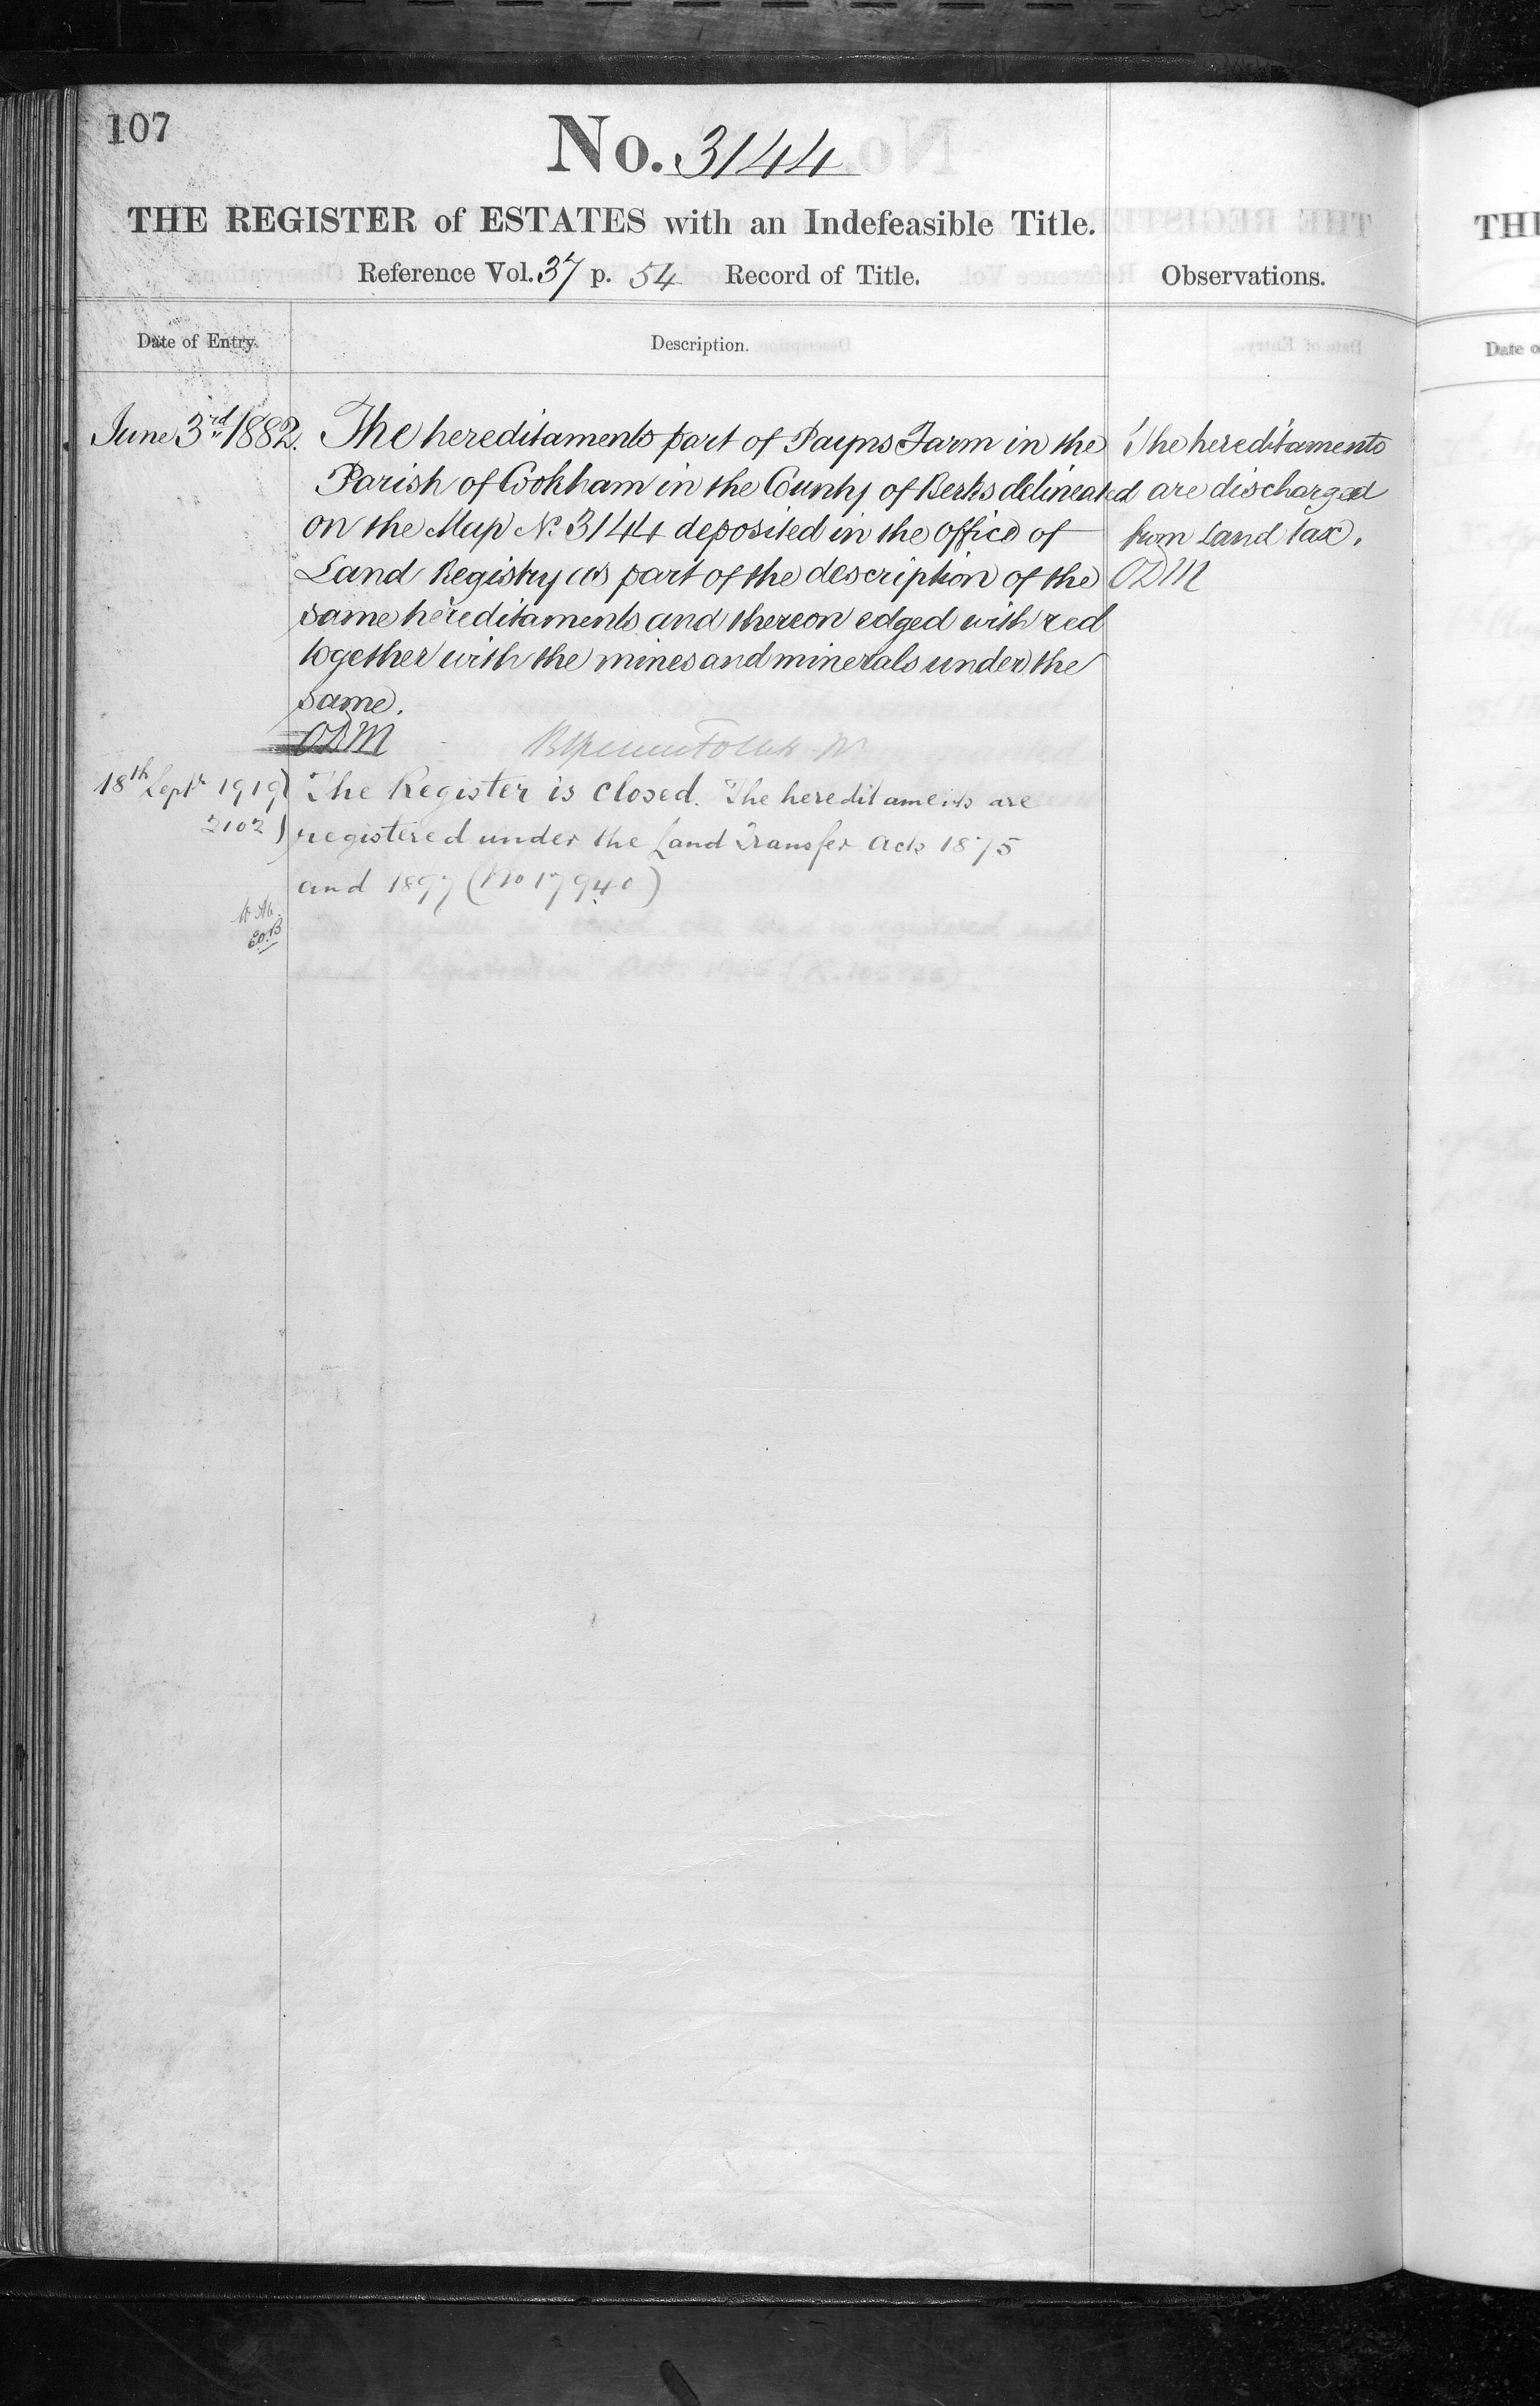 107
No. 3144
THE REGISTER of ESTATES with an Indefeasible Title.
Reference Vol. 37 p. 54 Record of Title.
Observations.
Date of Entry.
Description.
June 3rd 1882.
The hereditaments part of Payns Farm in the
Parish of Cookham in the County of Berks delineated
on the Map No. 3144 deposited in the office of
Land Registry as part of the description of the
same hereditaments and thereon edged with red
together with the mines and minerals under the
same.
ODM
The hereditaments
are discharged
from Land tax.
ODM
18th Septr 1919
2102
The Register is closed. The hereditaments are
registered under the Land Transfer Acts 1875
and 1897 (No 17940)
E.O.B
THE
Date o